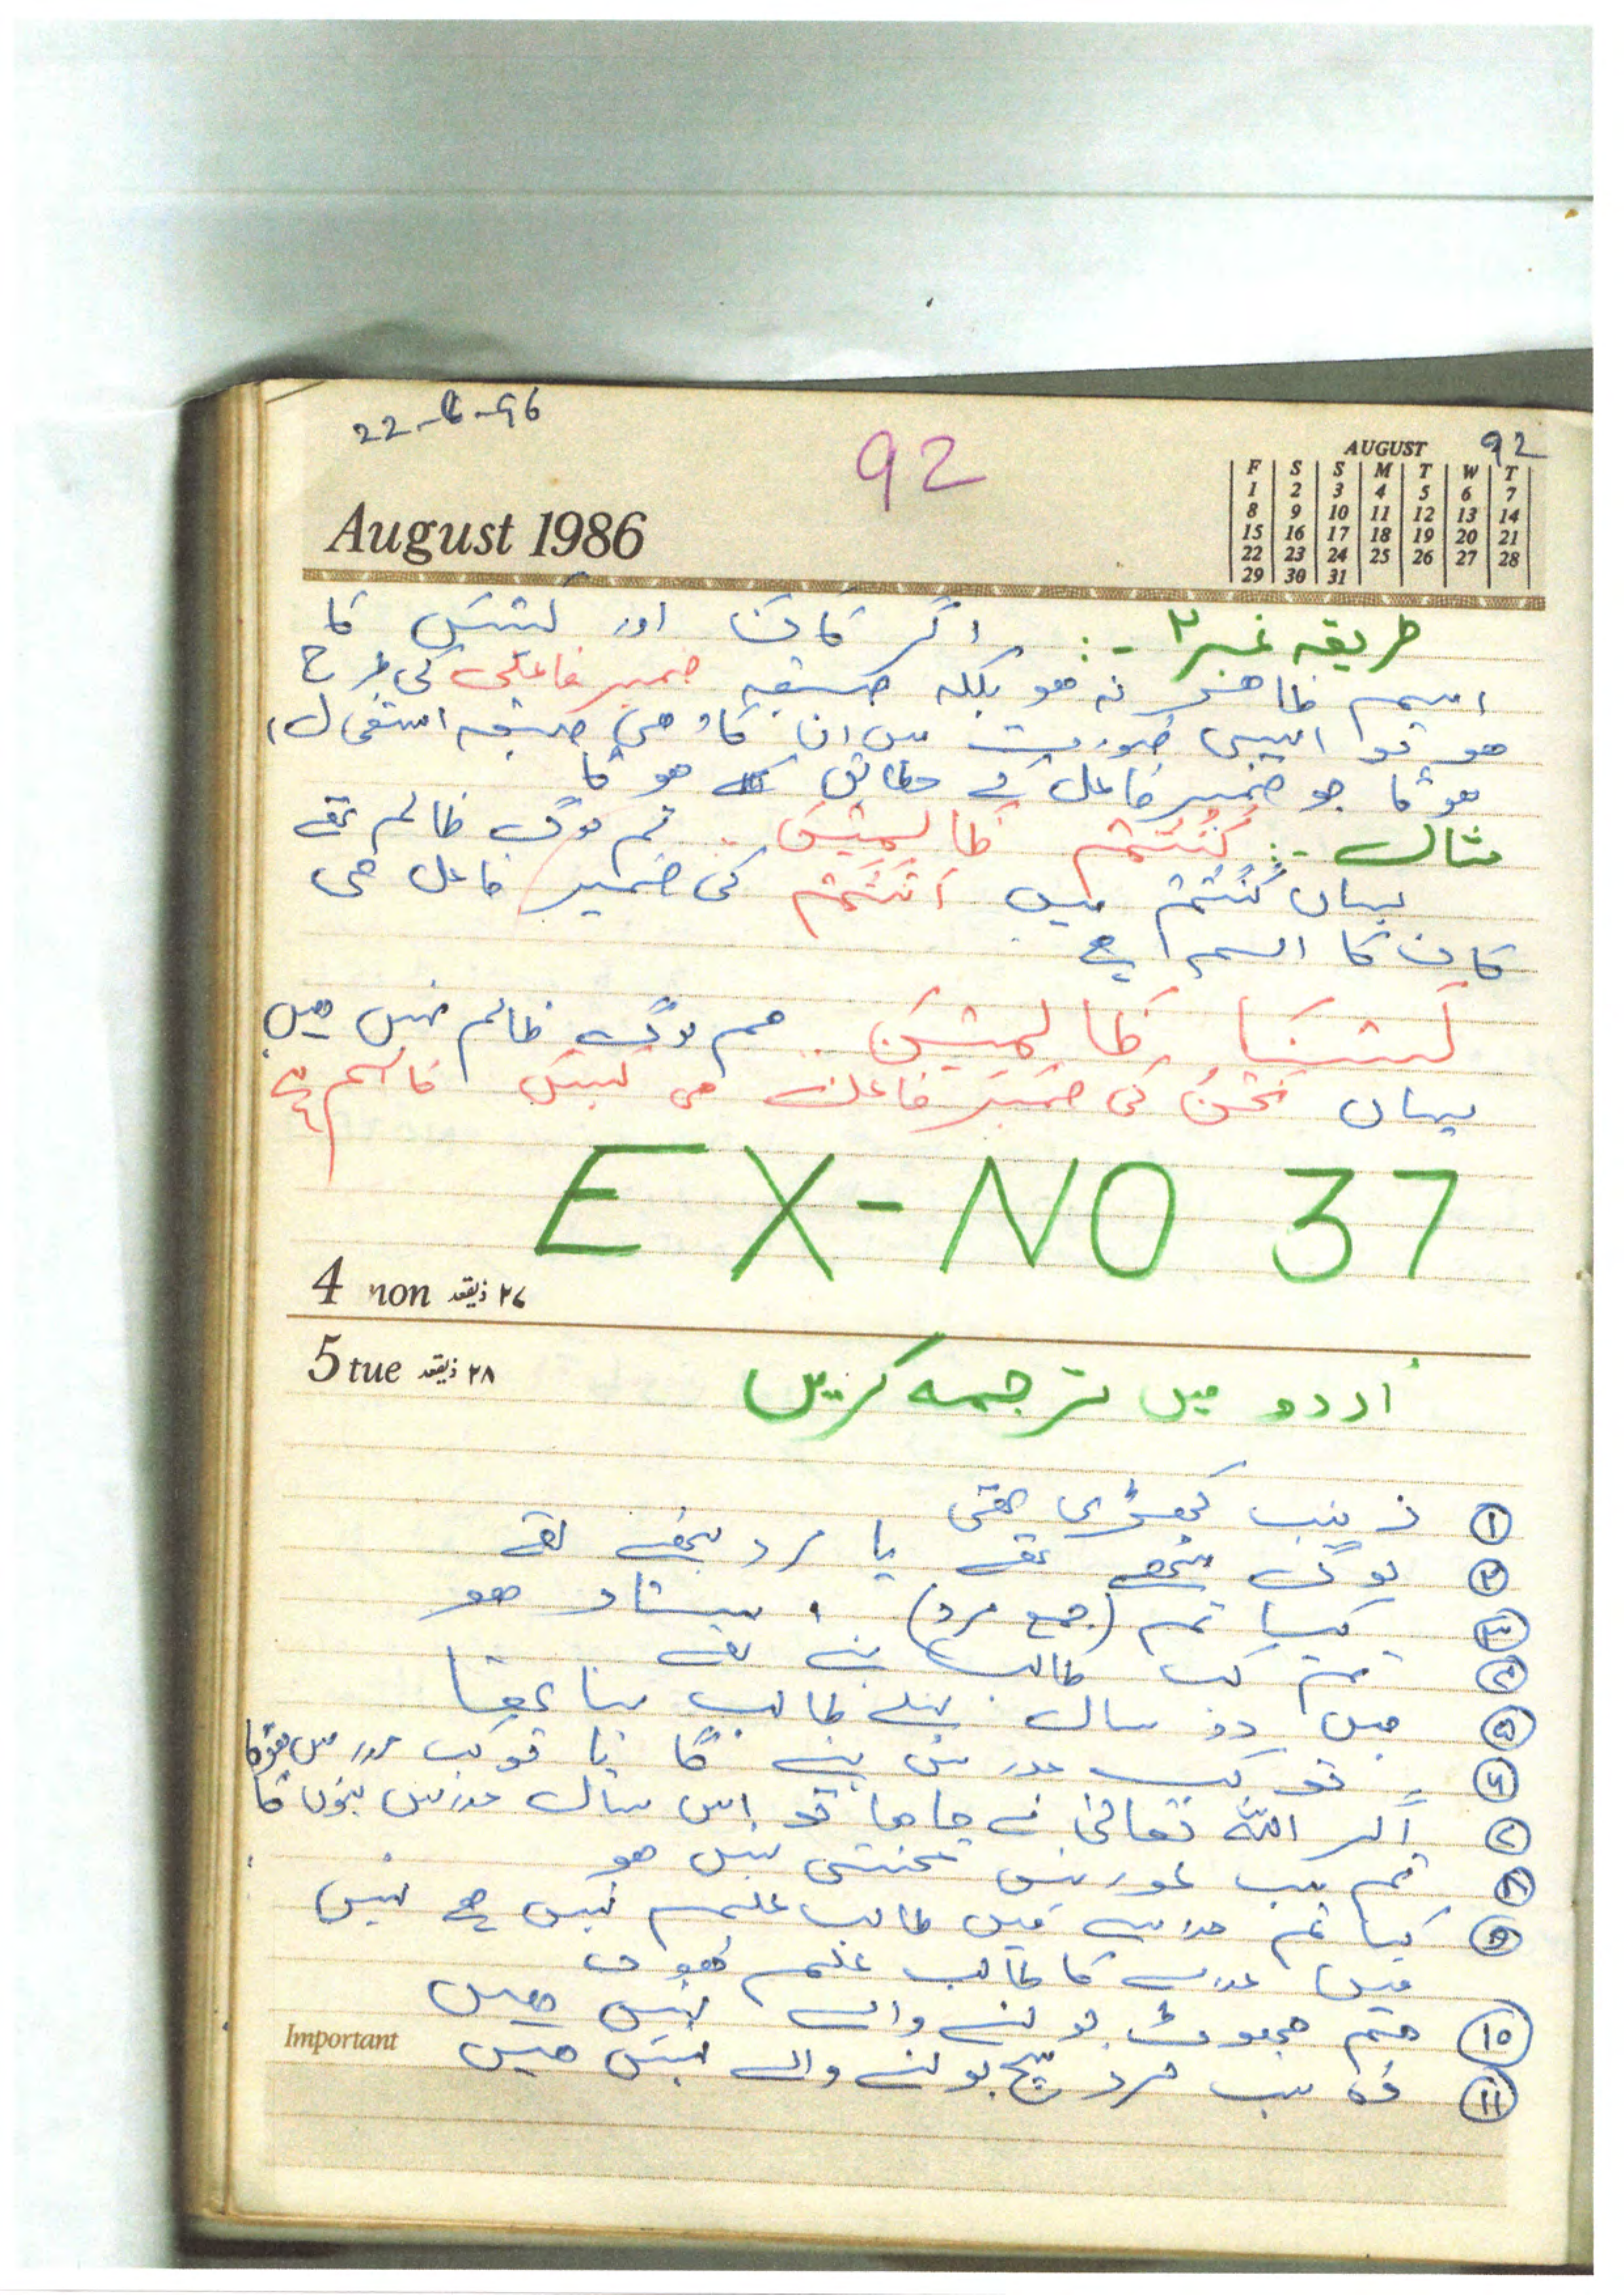 22-6-96
92
92
August 1986
AUGUST
F S S M T W T
1 2 3 4 5 6 7
8 9 10 11 12 13 14
15 16 17 18 19 20 21
22 23 24 25 26 27 28
29 30 31
طریقہ نمبر ۲ :- اگر کانَ اور لَیْسَ کا
اسم ظاھر نہ ھو بلکہ صیغہ ضمیر فاعلی کی طرح
ھو تو ایسی صورت میں ان کا وھی صیغہ استعمال
ھوگا جو ضمیر فاعل کے مطابق ھوگا
مثال :- کُنْتُمْ ظَالِمِیْنَ .. تم لوگ ظالم تھے
یہاں کُنْتُمْ میں اَنْتُمْ کی ضمیر فاعل ھی
کان کا اسم ہے
لَسْنَا ظَالِمِیْنَ .. ھم لوگ ظالم نہیں ھیں
یہاں نَحْنُ کی ضمیر فاعل ھی لیس کا اسم ہے
EX-NO 37
4 non ۲۷ ذیقعد
5 tue ۲۸ ذیقعد
اردو میں ترجمہ کریں
۱ زینب کھڑی تھی
۲ لوگ بیٹھے تھے یا مرد بیٹھے تھے
۳ کیا تم (جمع مرد) استاد ھو
۴ تم کب طالب بنے تھے
۵ میں دو سال پہلے طالب بنا تھا
۶ تو کب مدرس بنے گا یا تو کب مدرس ھوگا
۷ اگر اللہ تعالیٰ نے چاھا تو اس سال مدرس بنوں گا
۸ تم سب عورتیں محنتی نہیں ھو
۹ کیا تم مدرسے میں طالب علم نہیں ہے نہیں
میں مدرسے کا طالب علم ھوں
۱۰ ھم جھوٹ بولنے والے نہیں ھیں
Important
۱۱ وہ سب مرد سچ بولنے والے نہیں ھیں